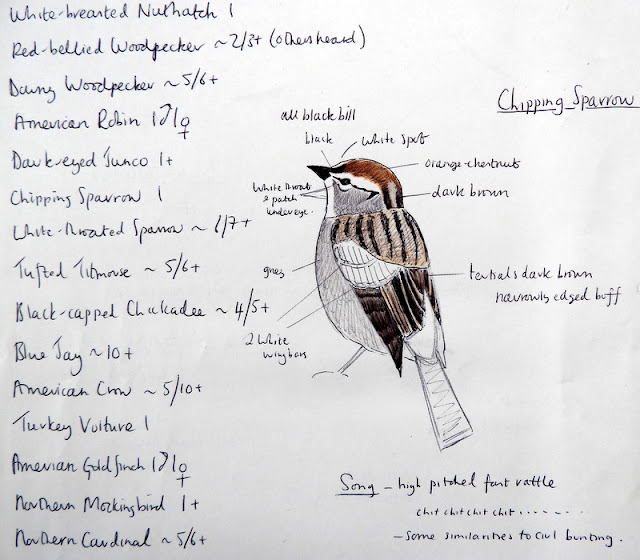 White-breasted Nuthatch 1
Red-bellied Woodpecker ~2/3+ (others heard)
Downy Woodpecker ~5/6+
American Robin 1♂1♀
Dark-eyed Junco 1+
Chipping Sparrow 1
White-throated Sparrow ~6/7+
Tufted Titmouse ~ 5/6+
Black-capped Chickadee ~ 4/5+
Blue Jay ~10+
American Crow ~ 5/10+
Turkey Vulture 1
American Goldfinch 1♂1♀
Northern Mockingbird 1+
Northern Cardinal ~5/6+
Chipping Sparrow
all black bill
black
white spot
orange-chestnut
White throat
& patch
under eye.
dark brown
grey
tertials dark brown
narrowly edged buff
2 white
wing bars
Song - high pitched fast rattle
chit chit chit chit.......
- some similarities to Cirl bunting.